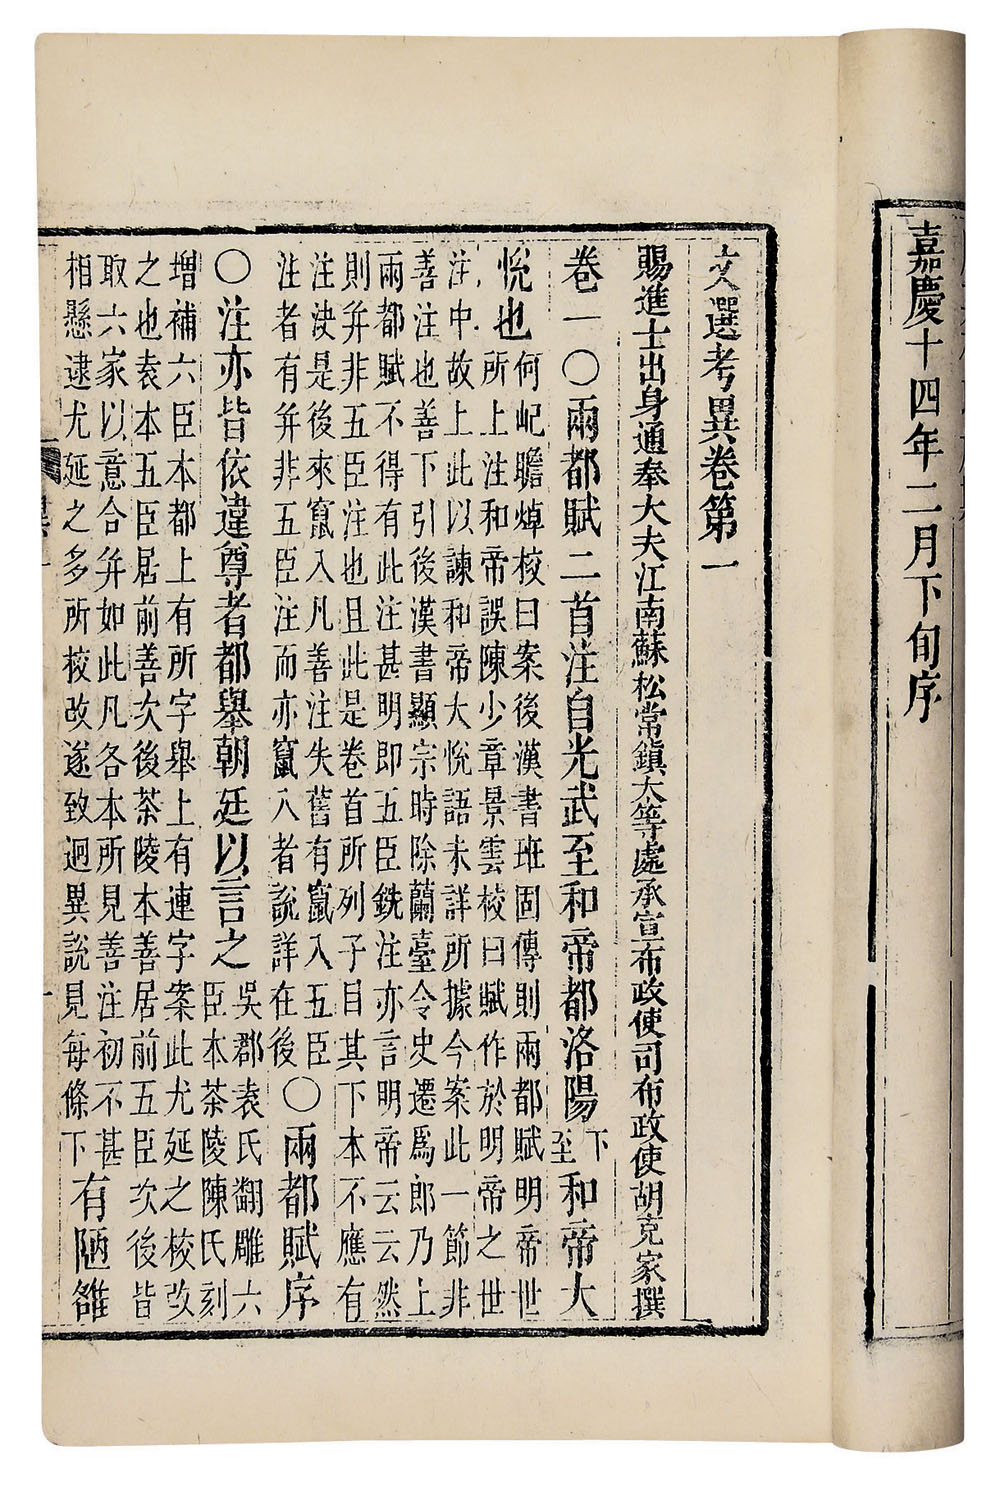 嘉慶十四年二月下旬序
文選考異卷第一
賜進士出身通奉大夫江南蘇松常鎮太等處承宣布政使司布政使胡克家撰
卷一〇兩都賦二首注自光武至和帝都洛陽下至和帝大
悅也何屺瞻焯校曰案後漢書班固傳則兩都賦明帝世
所上注和帝誤陳少章景雲校曰賦作於明帝之世
注中故上此以諫和帝大悅語未詳所據今案此一節非
善注也善下引後漢書顯宗時除蘭臺令史遷爲郎乃上
兩都賦不得有此注甚明即五臣銑注亦言明帝云云然
則并非五臣注也且此是卷首所列子目其下本不應有
注決是後來竄入凡善注失舊有竄入五臣
注者有并非五臣注而亦竄入者說詳在後〇兩都賦序
〇注亦皆依違尊者都舉朝廷以言之吳郡袁氏翻雕六
臣本茶陵陳氏刻
增補六臣本都上有所字舉上有連字案此尤延之校改
之也袁本五臣居前善次後茶陵本善居前五臣次後皆
取六家以意合并如此凡各本所見善注初不甚
相懸逮尤延之多所校改遂致迥異說見每條下有陋雒